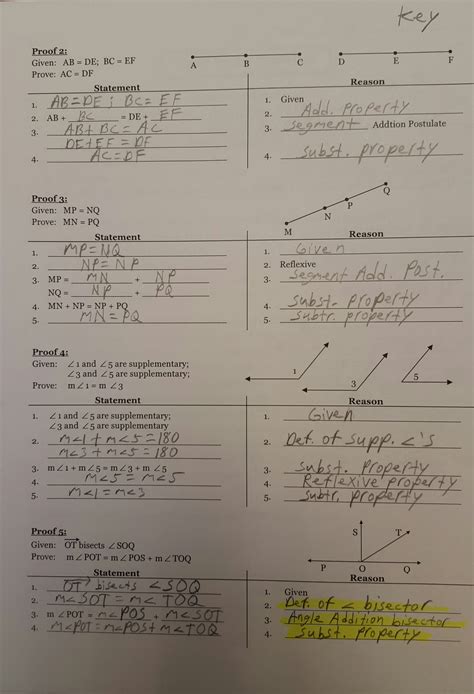 Key
Proof 2:
Given: AB = DE; BC = EF
Prove: AC = DF
A B C D E F
Statement Reason
1. AB = DE ; BC = EF 1. Given
2. AB + BC = DE + EF 2. Add. property
3. AB + BC = AC 3. segment Addtion Postulate
DE + EF = DF
4. AC = DF 4. subst. property
Proof 3:
Given: MP = NQ
Prove: MN = PQ
M N P Q
Statement Reason
1. MP = NQ 1. Given
2. NP = NP 2. Reflexive
3. MP = MN + NP 3. segment Add. Post.
NQ = NP + PQ
4. MN + NP = NP + PQ 4. subst. property
5. MN = PQ 5. subtr. property
Proof 4:
Given: ∠1 and ∠5 are supplementary;
∠3 and ∠5 are supplementary;
Prove: m∠1 = m∠3
1 3 5
Statement Reason
1. ∠1 and ∠5 are supplementary; 1. Given
∠3 and ∠5 are supplementary
2. m∠1 + m∠5 = 180 2. Def. of supp. ∠'s
m∠3 + m∠5 = 180
3. m∠1 + m∠5 = m∠3 + m∠5 3. subst. Property
4. m∠5 = m∠5 4. Reflexive property
5. m∠1 = m∠3 5. subtr. property
Proof 5:
Given: OT bisects ∠SOQ
Prove: m∠POT = m∠POS + m∠TOQ
S T
P O Q
Statement Reason
1. OT bisects ∠SOQ 1. Given
2. m∠SOT = m∠TOQ 2. Def. of ∠ bisector
3. m∠POT = m∠POS + m∠SOT 3. Angle Addition bisector
4. m∠POT = m∠POS + m∠TOQ 4. Subst. property